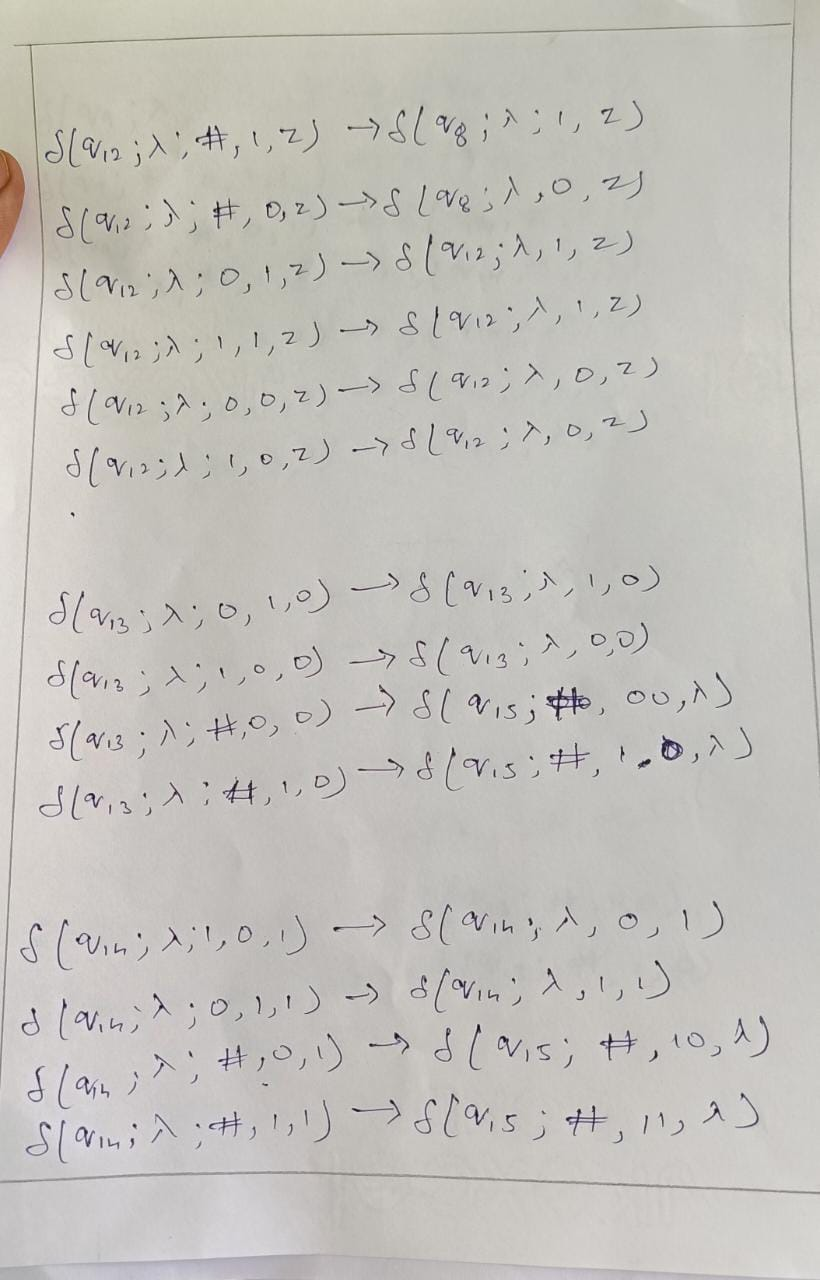 δ(q₁₂; λ; #, 1, z) → δ(q₈; λ; 1, z)
δ(q₁₂; λ; #, 0, z) → δ(q₈; λ, 0, z)
δ(q₁₂; λ; 0, 1, z) → δ(q₁₂; λ, 1, z)
δ(q₁₂; λ; 1, 1, z) → δ(q₁₂; λ, 1, z)
δ(q₁₂; λ; 0, 0, z) → δ(q₁₂; λ, 0, z)
δ(q₁₂; λ; 1, 0, z) → δ(q₁₂; λ, 0, z)
δ(q₁₃; λ; 0, 1, 0) → δ(q₁₃; λ, 1, 0)
δ(q₁₃; λ; 1, 0, 0) → δ(q₁₃; λ, 0, 0)
δ(q₁₃; λ; #, 0, 0) → δ(q₁₅; #, 00, λ)
δ(q₁₃; λ; #, 1, 0) → δ(q₁₅; #, 1 0, λ)
δ(q₁₄; λ; 1, 0, 1) → δ(q₁₄; λ, 0, 1)
δ(q₁₄; λ; 0, 1, 1) → δ(q₁₄; λ, 1, 1)
δ(q₁₄; λ; #, 0, 1) → δ(q₁₅; #, 10, λ)
δ(q₁₄; λ; #, 1, 1) → δ(q₁₅; #, 11, λ)